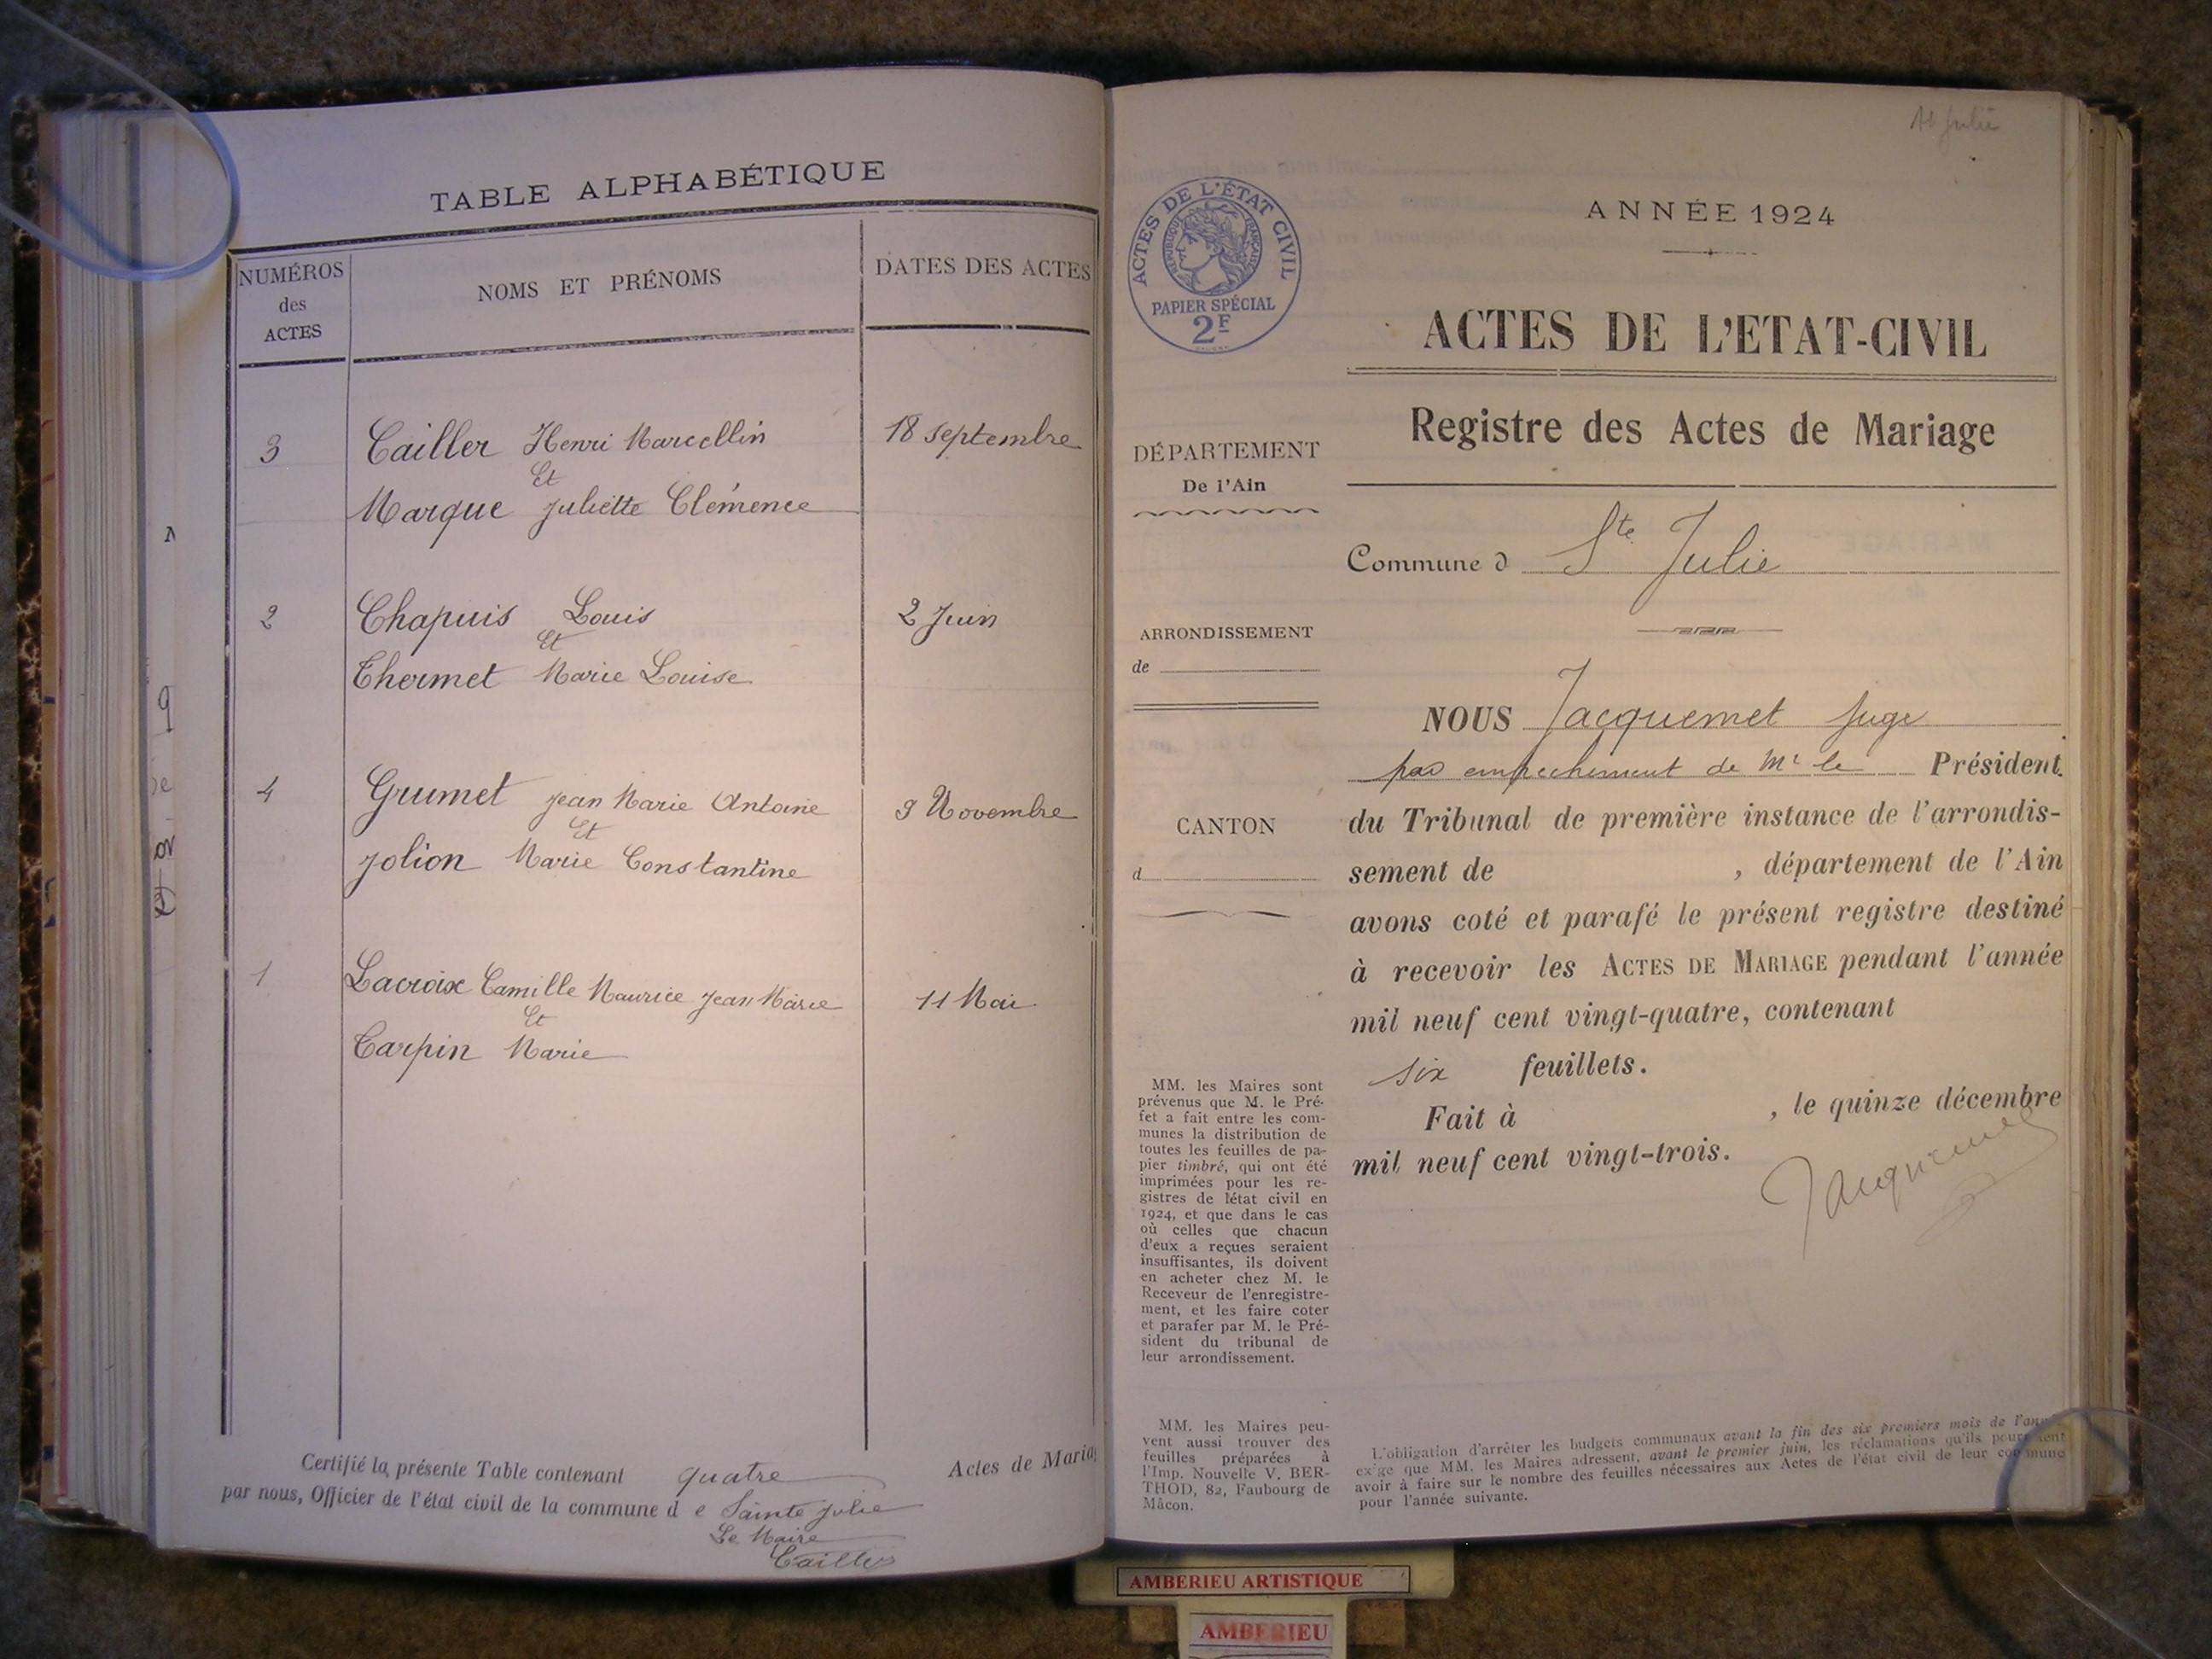 TABLE ALPHABÉTIQUE
NUMÉROS
des
ACTES
NOMS ET PRÉNOMS
DATES DES ACTES
3 Cailler Henri Marcellin 18 septembre
Et
Marque Juliette Clémence
2 Chapuis Louis 2 Juin
Et
Thermet Marie Louise
4 Grumet Jean Marie Antoine 9 Novembre
Et
Jolion Marie Constantine
1 Lacroix Camille Maurice Jean Marie 11 Mai
Et
Carpin Marie
Certifié la présente Table contenant quatre Actes de Maria
par nous, Officier de l'état civil de la commune d e Sainte Julie
Le Maire
Cailler
Julie
ANNÉE 1924
ACTES DE L'ÉTAT CIVIL
REPUBLIQUE FRANÇAISE
PAPIER SPÉCIAL
2F
ACTES DE L'ETAT-CIVIL
Registre des Actes de Mariage
DÉPARTEMENT
De l'Ain
Commune d Ste Julie
ARRONDISSEMENT
de
CANTON
d
NOUS Jacquemet Juge
par empechement de Mr le Président
du Tribunal de première instance de l'arrondis-
sement de , département de l'Ain
avons coté et parafé le présent registre destiné
à recevoir les ACTES DE MARIAGE pendant l'année
mil neuf cent vingt-quatre, contenant
six feuillets.
Fait à , le quinze décembre
mil neuf cent vingt-trois.
Jacquemet
MM. les Maires sont
prévenus que M. le Pré-
fet a fait entre les com-
munes la distribution de
toutes les feuilles de pa-
pier timbré, qui ont été
imprimées pour les re-
gistres de l'état civil en
1924, et que dans le cas
où celles que chacun
d'eux a reçues seraient
insuffisantes, ils doivent
en acheter chez M. le
Receveur de l'enregistre-
ment, et les faire coter
et parafer par M. le Pré-
sident du tribunal de
leur arrondissement.
MM. les Maires peu-
vent aussi trouver des
feuilles préparées à
l'Imp. Nouvelle V. BER-
THOD, 82, Faubourg de
Mâcon.
L'obligation d'arrêter les budgets communaux avant la fin des six premiers mois de l'année
exige que MM. les Maires adressent, avant le premier juin, les réclamations qu'ils pourraient
avoir à faire sur le nombre des feuilles nécessaires aux Actes de l'état civil de leur commune
pour l'année suivante.
AMBERIEU ARTISTIQUE
AMBERIEU